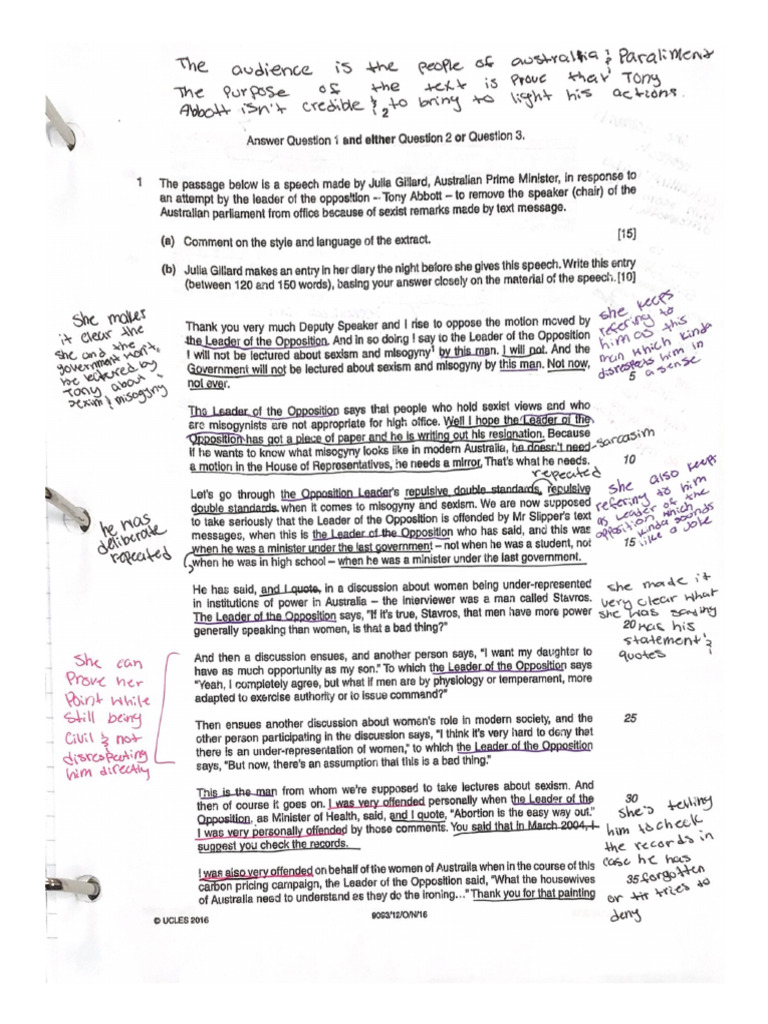 The audience is the people of australia & Paraliment
The Purpose of the text is Prove that Tony
Abbott isn't credible & to bring to light his actions.
2
Answer Question 1 and either Question 2 or Question 3.
1 The passage below is a speech made by Julia Gillard, Australian Prime Minister, in response to
an attempt by the leader of the opposition – Tony Abbott – to remove the speaker (chair) of the
Australian parliament from office because of sexist remarks made by text message.
(a) Comment on the style and language of the extract. [15]
(b) Julia Gillard makes an entry in her diary the night before she gives this speech. Write this entry
(between 120 and 150 words), basing your answer closely on the material of the speech. [10]
She makes
it clear the
she and the
government won't
be lectured by
Tony about
sexism & misogyny
Thank you very much Deputy Speaker and I rise to oppose the motion moved by
the Leader of the Opposition. And in so doing I say to the Leader of the Opposition
I will not be lectured about sexism and misogyny¹ by this man. I will not. And the
Government will not be lectured about sexism and misogyny by this man. Not now,
not ever.
she keeps
refering to
him as this
man which kinda
disrespects him in
5 a sense
The Leader of the Opposition says that people who hold sexist views and who
are misogynists are not appropriate for high office. Well I hope the Leader of the
Opposition has got a piece of paper and he is writing out his resignation. Because
if he wants to know what misogyny looks like in modern Australia, he doesn't need
a motion in the House of Representatives, he needs a mirror. That's what he needs.
sarcasim
10
repeated
Let's go through the Opposition Leader's repulsive double standards, repulsive
double standards, when it comes to misogyny and sexism. We are now supposed
to take seriously that the Leader of the Opposition is offended by Mr Slipper's text
messages, when this is the Leader of the Opposition who has said, and this was
when he was a minister under the last government – not when he was a student, not
when he was in high school – when he was a minister under the last government.
she also keeps
refering to him
as Leader of the
opposition which
kinda sounds
15 like a Joke
he has
deliberate
repeated
He has said, and I quote, in a discussion about women being under-represented
in institutions of power in Australia – the interviewer was a man called Stavros.
The Leader of the Opposition says, "If it's true, Stavros, that men have more power
generally speaking than women, is that a bad thing?"
she made it
very clear what
she was saying
20 has his
statement &
quotes
And then a discussion ensues, and another person says, "I want my daughter to
have as much opportunity as my son." To which the Leader of the Opposition says
"Yeah, I completely agree, but what if men are by physiology or temperament, more
adapted to exercise authority or to issue command?"
She can
Prove her
Point while
Still being
Civil & not
disrespecting
him directly
Then ensues another discussion about women's role in modern society, and the
other person participating in the discussion says, "I think it's very hard to deny that
there is an under-representation of women," to which the Leader of the Opposition
says, "But now, there's an assumption that this is a bad thing."
25
This is the man from whom we're supposed to take lectures about sexism. And
then of course it goes on. I was very offended personally when the Leader of the
Opposition, as Minister of Health, said, and I quote, "Abortion is the easy way out."
I was very personally offended by those comments. You said that in March 2004, I
suggest you check the records.
30
She's telling
him to check
the records in
case he has
35 forgotten
or tries to
deny
I was also very offended on behalf of the women of Australia when in the course of this
carbon pricing campaign, the Leader of the Opposition said, "What the housewives
of Australia need to understand as they do the ironing…" Thank you for that painting
© UCLES 2016
9093/12/O/N/16